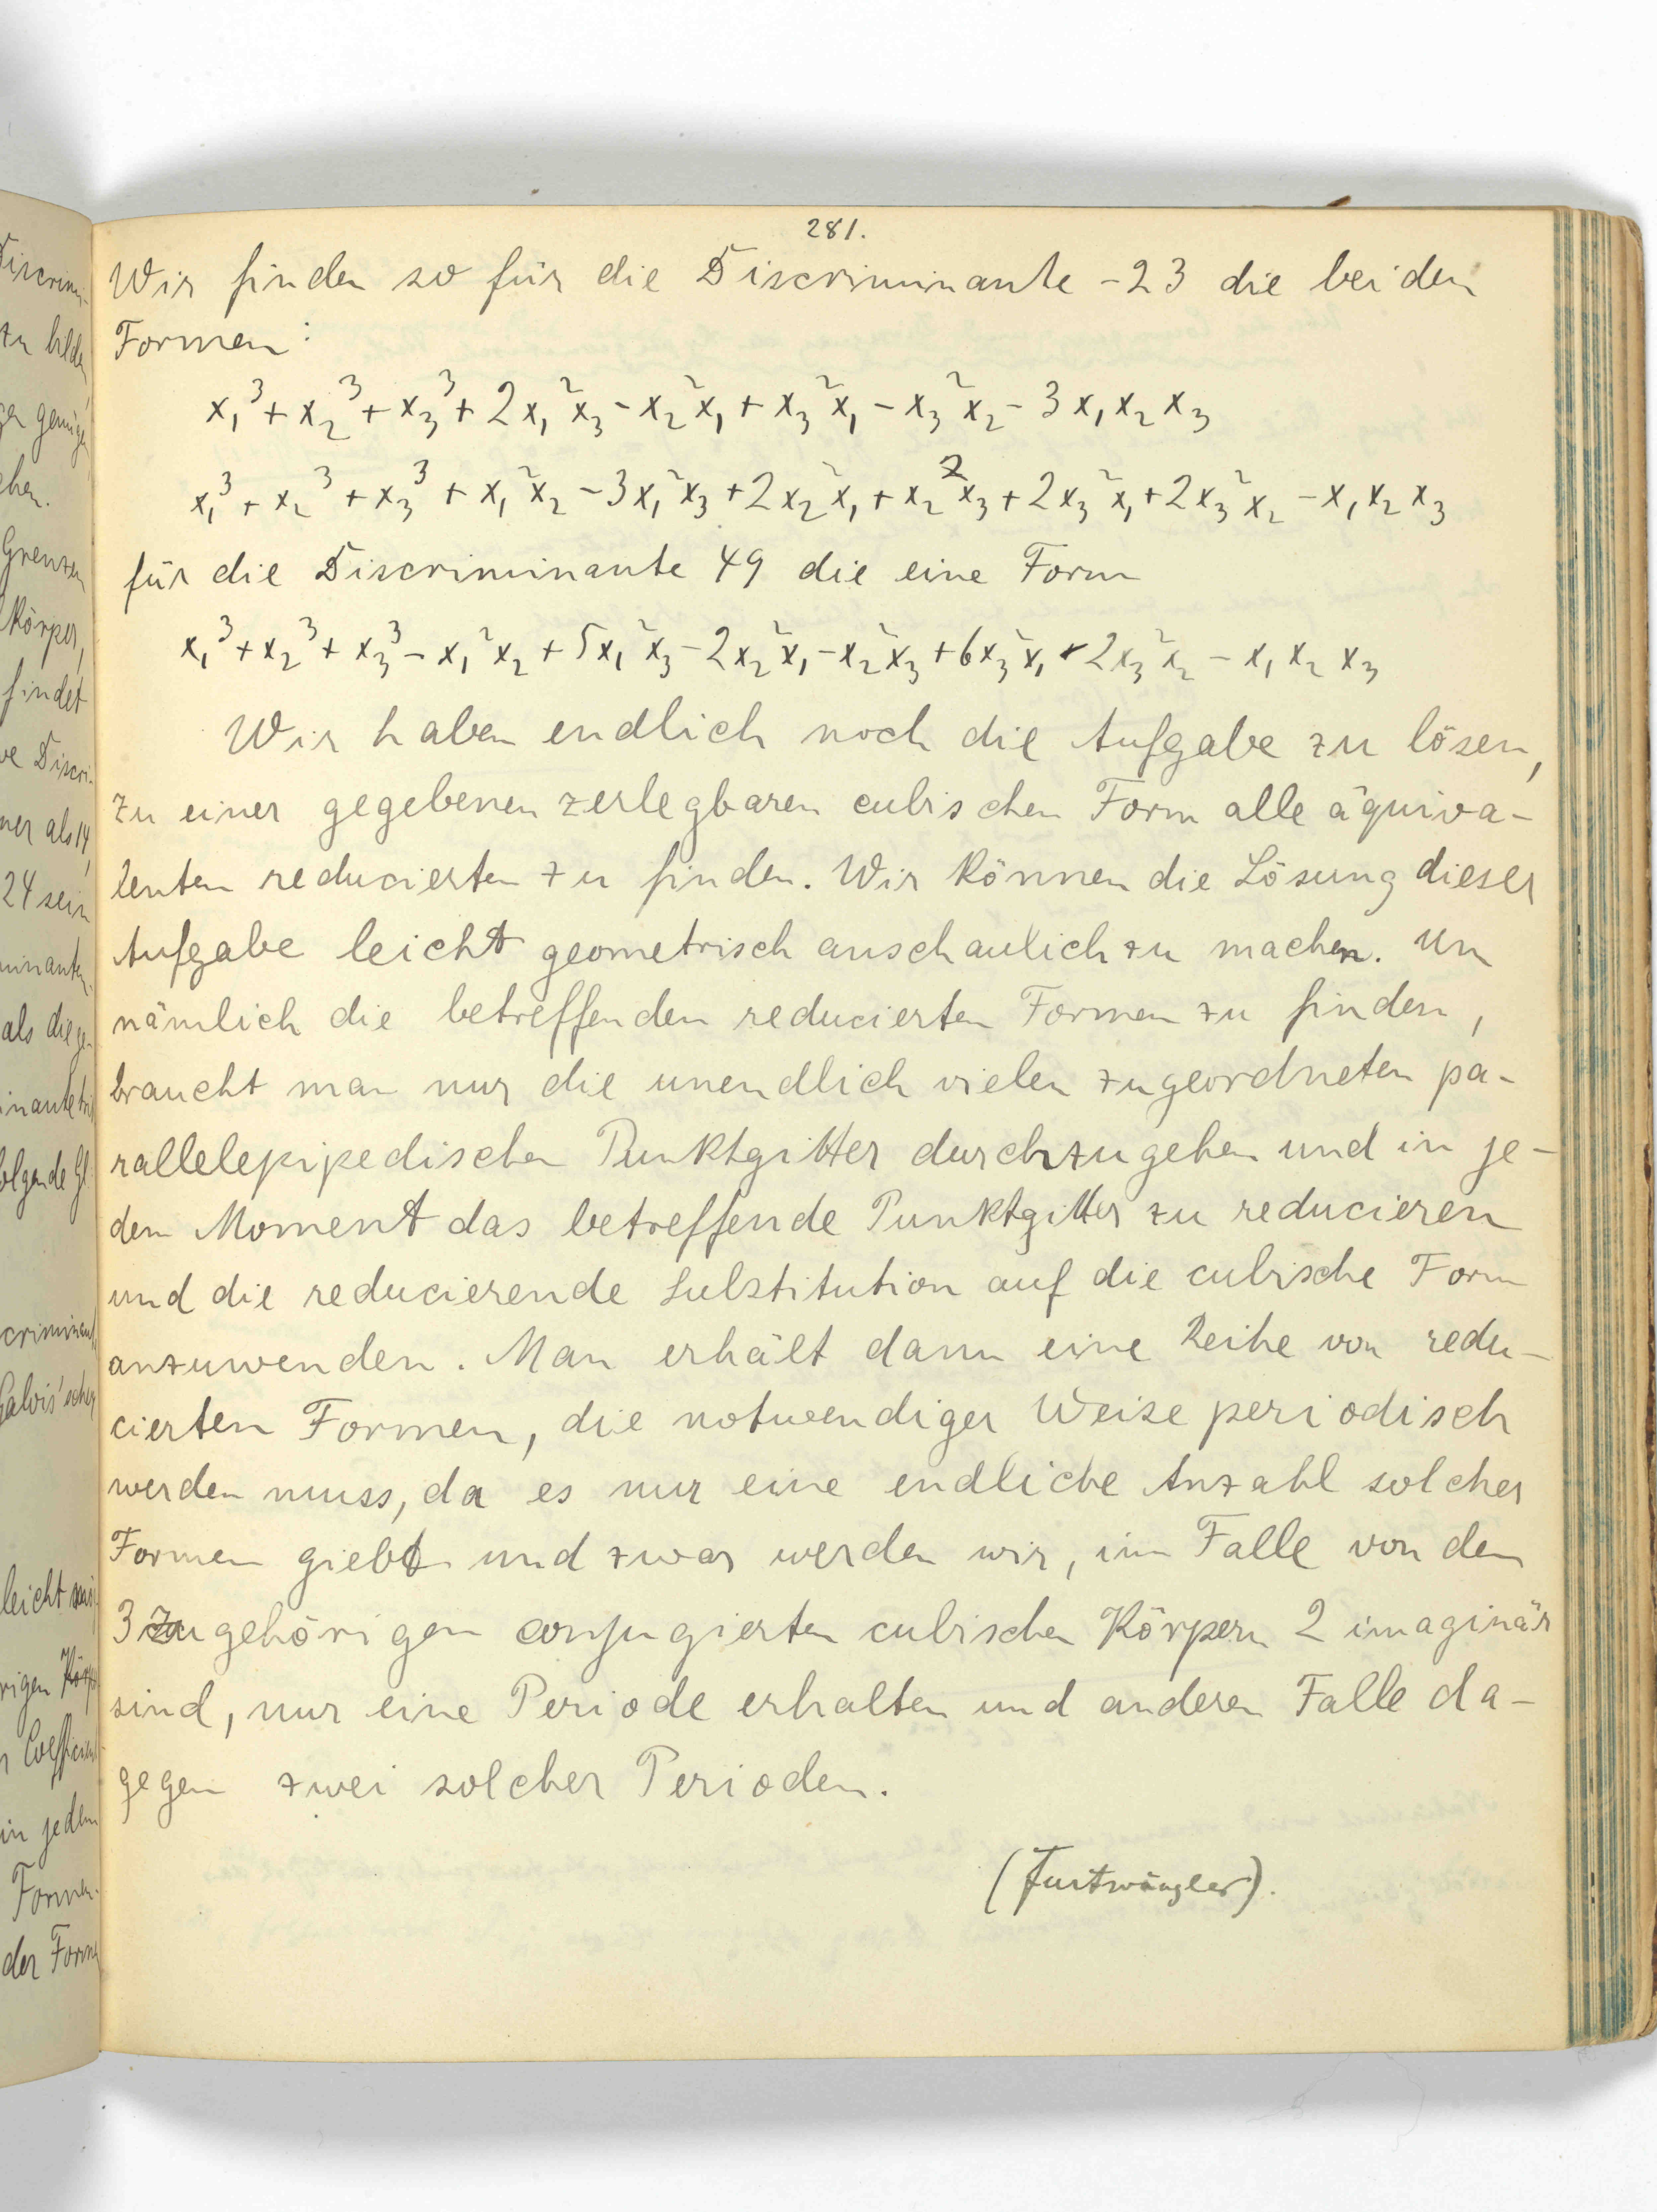 281.
Wir finden so für die Discriminante -23 die beiden
Formen:
x₁³ + x₂³ + x₃³ + 2x₁²x₃ - x₂²x₁ + x₃²x₁ - x₃²x₂ - 3x₁x₂x₃
x₁³ + x₂³ + x₃³ + x₁²x₂ - 3x₁²x₃ + 2x₂²x₁ + x₂²x₃ + 2x₃²x₁ + 2x₃²x₂ - x₁x₂x₃
für die Discriminante 49 die eine Form
x₁³ + x₂³ + x₃³ - x₁²x₂ + 5x₁²x₃ - 2x₂²x₁ - x₂²x₃ + 6x₃²x₁ - 2x₃²x₂ - x₁x₂x₃
Wir haben endlich noch die Aufgabe zu lösen,
zu einer gegebenen zerlegbaren cubischen Form alle äquiva-
lenten reducierten zu finden. Wir können die Lösung dieser
Aufgabe leicht geometrisch anschaulich zu machen. Um
nämlich die betreffenden reducierten Formen zu finden,
braucht man nur die unendlich vielen zugeordneten pa-
rallelepipedischen Punktgitter durchzugehen und in je-
dem Moment das betreffende Punktgitter zu reducieren
und die reducierende Substitution auf die cubische Form
anzuwenden. Man erhält dann eine Reihe von redu-
cierten Formen, die notwendiger Weise periodisch
werden muss, da es nur eine endliche Anzahl solcher
Formen giebt und zwar werden wir, im Falle von den
3 zugehörigen conjugierten cubischen Körpern 2 imaginär
sind, nur eine Periode erhalten und anderen Falle da-
gegen zwei solcher Perioden.
(Furtwängler).
Discrimi-
zu bilde
chen.
Grenzen
Körper,
findet
ve Discri-
ner als 14,
24 sein
minante
als die
leicht
in jedem
Formen.
der Form